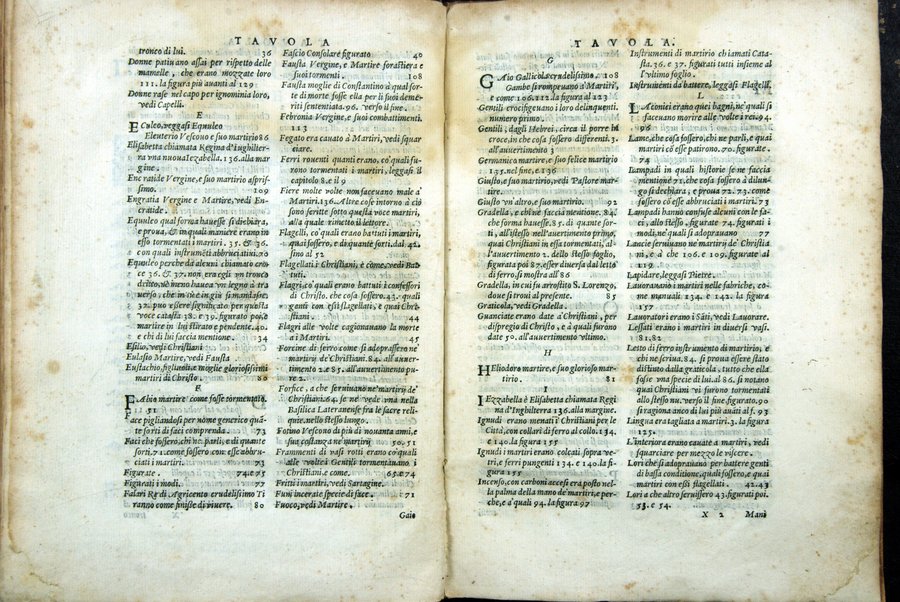 TAVOLA
tronco di lui. 36
Donne patiuano assai per rispetto delle
mamelle, che erano mozzate loro
111. la figura più auanti al 129.
Donne rase nel capo per ignominia loro,
vedi Capelli.
E
ECuleo, veggasi Equuleo
Eleuterio Vescouo e suo martirio 86
Elisabetta chiamata Regina d'Inghilter
ra vna nuoua Iezabella. 136. alla mar
gine.
Encratide Vergine, e suo martirio aspris
simo. 109
Engratia Vergine e Martire, vedi En-
cratide.
Equuleo qual forma hauesse si dichiara,
e proua, & in quali maniere erano in
esso tormentati i martiri. 35. & 36.
con quali instrumenti abbruciati. 70
Equuleo perche da alcuni chiamato cro
ce 36. & 37. non era egli vn tronco
dritto, nè meno haueua vn legno à tra
verso, che in sine in giu si mandasse,
37. può essere significato per questa
voce catasta 38. e 39. figurato poi, e
martire in lui stirato e pendente. 40.
e chi di lui faccia mentione. 34
Esilio, vedi Christiani
Eulasio Martire, vedi Fausta
Eustachio, figliuoli e moglie gloriosissimi
martiri di Christo. 80
F
FAbio martire come fosse tormentato.
51
Face pigliandosi per nome generico quā
te sorti di faci comprenda. 73
Faci che fossero, chi ne parli; e di quante
sorti, 71. come fossero con esse abbru-
ciati i martiri. 73
Figurate. 74 e 75
Figurati i modi. 77
Falari Rè di Agricento crudelissimo Ti
ranno come finisse di viuere. 80
Fascio Consolare figurato 40
Fausta Vergine, e Martire forastiera e
suoi tormenti. 108
Fausta moglie di Constantino à qual sor-
te di morte fosse ella per li suoi deme-
riti sententiata. 96. verso il fine.
Febronia Vergine, e suoi combattimenti.
113
Fegato era cauato à Martiri, vedi squar
ciare.
Ferri rouenti quanti erano, cō quali fu-
rono tormentati i martiri, leggasi il
capitolo 8. e il 9
Fiere molte volte non faceuano male à
Martiri. 136. Altre cose intorno à ciò
sono scritte sotto questa voce martiri,
alla quale rimetto il lettore.
Flagelli, cō quali erano batutti i martiri,
quai fossero, e di quante sorti, dal 42.
sino al 52
Flagellati i Christiani, e come, vedi Bat-
tuti.
Flagri, cō quali erano battuti i confessori
di Christo, che cosa fossero. 43. quali
genti con essi flagellati, e quai Chri-
stiani. 44
Flagri alle volte cagionauano la morte
a i Martiri. 45
Forcine di ferro come si adoprassero ne'
martirij de' Christiani. 84. all'auuer-
timento 2. e all'auuertimento pu-
re 2.
Forfice, à che seruiuano ne' martirij de'
Christiani. 64. se ne vede vna nella
Basilica Lateranense fra le sacre reli-
quie. nello stesso luogo.
Fotino Vescouo di più di nouanta anni, e
sua costanza ne martirij 50. 51
Frammenti di vasi rotti erano co' quali
alle volte i Gentili tormentauano i
Christiani, e come. 65. e 74
Fritti i martiri, vedi Sartagine.
Funi incerate specie di face. 71
Fuoco, vedi Martire.
Gaio
TAVOLA.
G
GAio Gallicola crudelissimo. 108
Gambe si rompeuano à Martiri,
e come 106. 112. la figura al 123
Gentili crocifigeuano i loro delinquenti.
numero primo.
Gentili, dagli Hebrei, circa il porre in
croce, in che cosa fossero differenti. 3.
all'auuertimento 3
Germanico martire, e suo felice martirio
135. nel fine, e 136
Giusto, e suo martirio, vedi Pastore mar-
tire.
Giusto vn' altro, e suo martirio. 92
Gradella, e chi ne faccia mentione. 84.
che forma hauesse. 85. di quante sor-
ti, all'istesso nell'auuertimento primo,
quai Christiani in essa tormentati, al-
l'auuertimento 2. dello stesso foglio,
figurata poi 87. esser diuersa dal letto
di ferro si mostra all' 86
Gradella, in cui fu arrostito S. Lorenzo,
doue si troui al presente. 85
Graticola, vedi Gradella.
Guanciate erano date a' Christiani, per
dispregio di Christo, e à quali furono
date 50. all'auuertimento vltimo.
H
HEliodoro martire, e suo glorioso mar-
tirio. 81
I
IEzzabella è Elisabetta chiamata Regi
na d'Inghilterra 136. alla margine.
Ignudi erano menati i Christiani per le
Città, con collari di ferro al collo. 134.
e 140. la figura 155
Ignudi i martiri erano colcati sopra ve-
tri, e ferri pungenti 134. e 140. la fi-
gura 155
Incenso, con carboni accesi era posto nel-
la palma della mano de' martiri, e per-
che, e à quali 94. la figura 97
Instrumenti di martirio chiamati Cata-
sta. 36. e 37. figurati tutti insieme al
l'vltimo foglio.
Instrumenti da battere, leggasi Flagelli.
L
LAconici erano quei bagni, ne' quali si
faceuano morire alle volte i rei. 94.
96
Lame, che cosa fossero, chi ne parli, e quai
martiri cō esse patirono. 70. figurate
74
Lampadi in quali historie se ne faccia
mentione 71. che cosa fossero à dilun-
go si dechiara, e proua 72. 73. come
fossero cō esse abbruciati i martiri 73
Lampadi hanno confuse alcuni con le fa-
ci, allo stesso. figurate 74. figurati i
modi, ne' quali si adoprauano 77
Lancie seruiuano ne' martirij de' Christia
ni, e à che 106. e 109. figurate al
119
Lapidare, leggasi Pietre.
Lauoranano i martiri nelle fabriche, co-
me manuali 134. e 141. la figura
157
Lauoratori erano i Sāti, vedi Lauorare.
Lessati erano i martiri in diuersi vasi.
81. 82.
Lesto di ferro instrumento di martirio, e
chi ne scriua. 84. si proua essere stato
distinto dalla graticola, tutto che ella
fosse vna specie di lui. al 86. si notano
quai Christiani vi furono tormentati
allo stesso nu. verso il fine. figurato. 90
si ragiona anco di lui più auāti al f. 93
Lingua era tagliata à martiri. 3. la figura
125.
L'interiora erano cauate à martiri, vedi
squarciare per mezzo le viscere.
Lori che si adoprauano per battere genti
di bassa conditione, quali fossero, e quai
martiri con essi flagellati. 42. 43
Lori a che altro seruissero 43. figurati poi.
53. e 54.
X 2 Mani